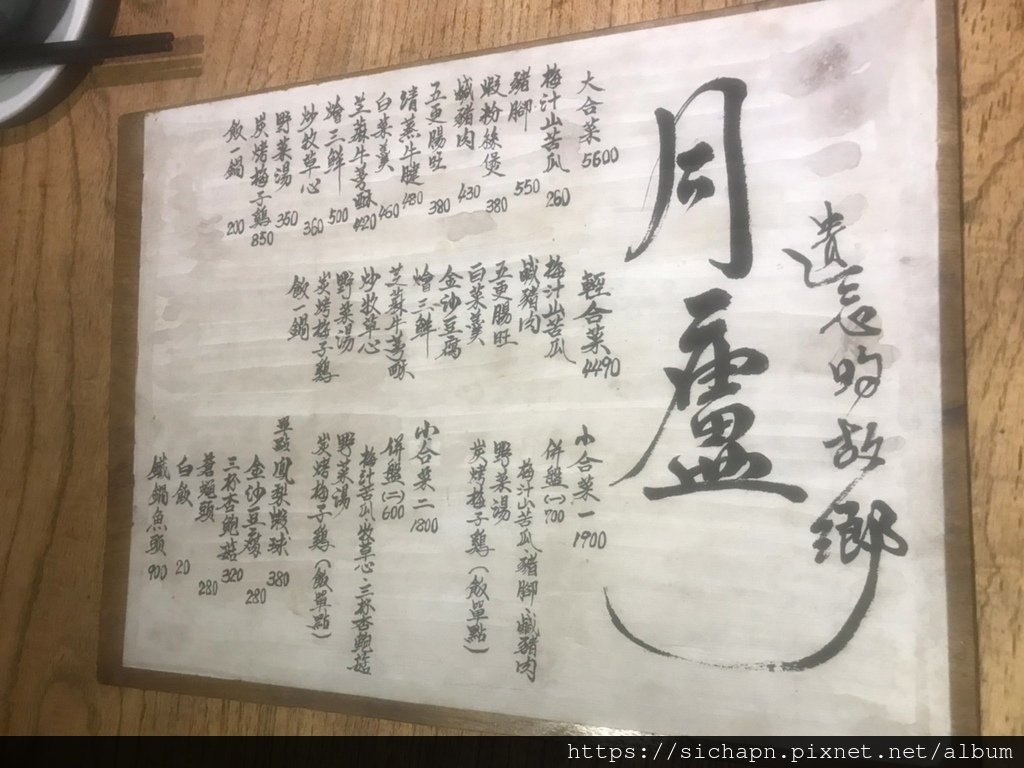 遺忘的故鄉
月廬
大合菜 5600
梅汁山苦瓜 260
豬腳 550
蝦粉絲煲 380
鹹豬肉 430
五更腸旺 380
清蒸牛腱 480
白菜羹 460
芝麻牛蒡酥 420
燴三鮮 500
炒牧草心 360
野菜湯 350
炭烤梅子鷄 850
飯一鍋 200
輕合菜 4490
梅汁山苦瓜
鹹豬肉
五更腸旺
白菜羹
金沙豆腐
燴三鮮
芝麻牛蒡酥
炒牧草心
野菜湯
炭烤梅子鷄
飯一鍋
小合菜一 1900
併盤(一) 700
梅汁山苦瓜、豬腳、鹹豬肉
野菜湯
炭烤梅子鷄(飯單點)
小合菜二 1800
併盤(二) 600
梅汁苦瓜、牧草心、三杯杏鮑菇
野菜湯
炭烤梅子鷄(飯單點)
單點 鳳梨蝦球 380
金沙豆腐 280
三杯杏鮑菇 320
蒼蠅頭 280
白飯 20
鐵鍋魚頭 900
https://sichapn.pixnet.net/album